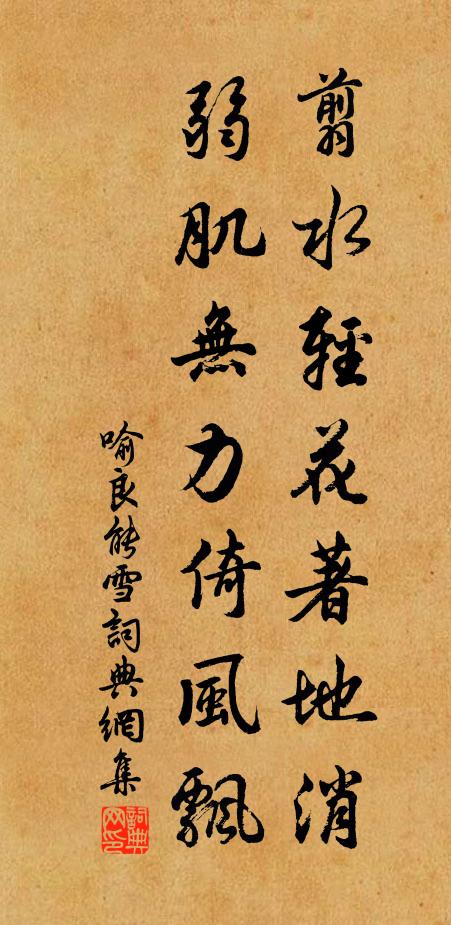 翦水輕花著地消
弱肌無力倚風飄
喻良能雪詞典網集
詞典网印